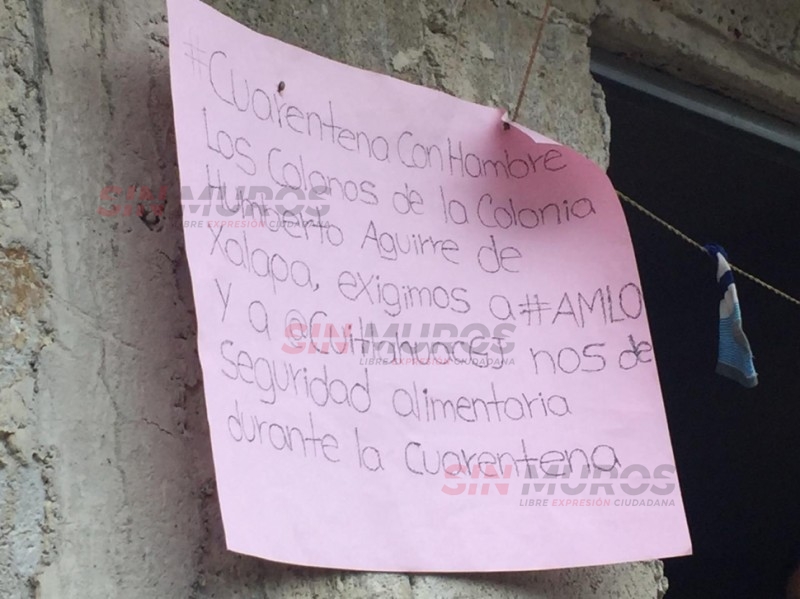 #Cuarentena Con Hambre
Los Colonos de la Colonia
Humberto Aguirre de
Xalapa, exigimos a #AMLO
y a nos de
seguridad alimentaria
durante la Cuarentena
SIN MUROS
LIBRE EXPRESIÓN CIUDADANA
SIN MUROS
LIBRE EXPRESIÓN CIUDADANA
SIN MUROS
LIBRE EXPRESIÓN CIUDADANA